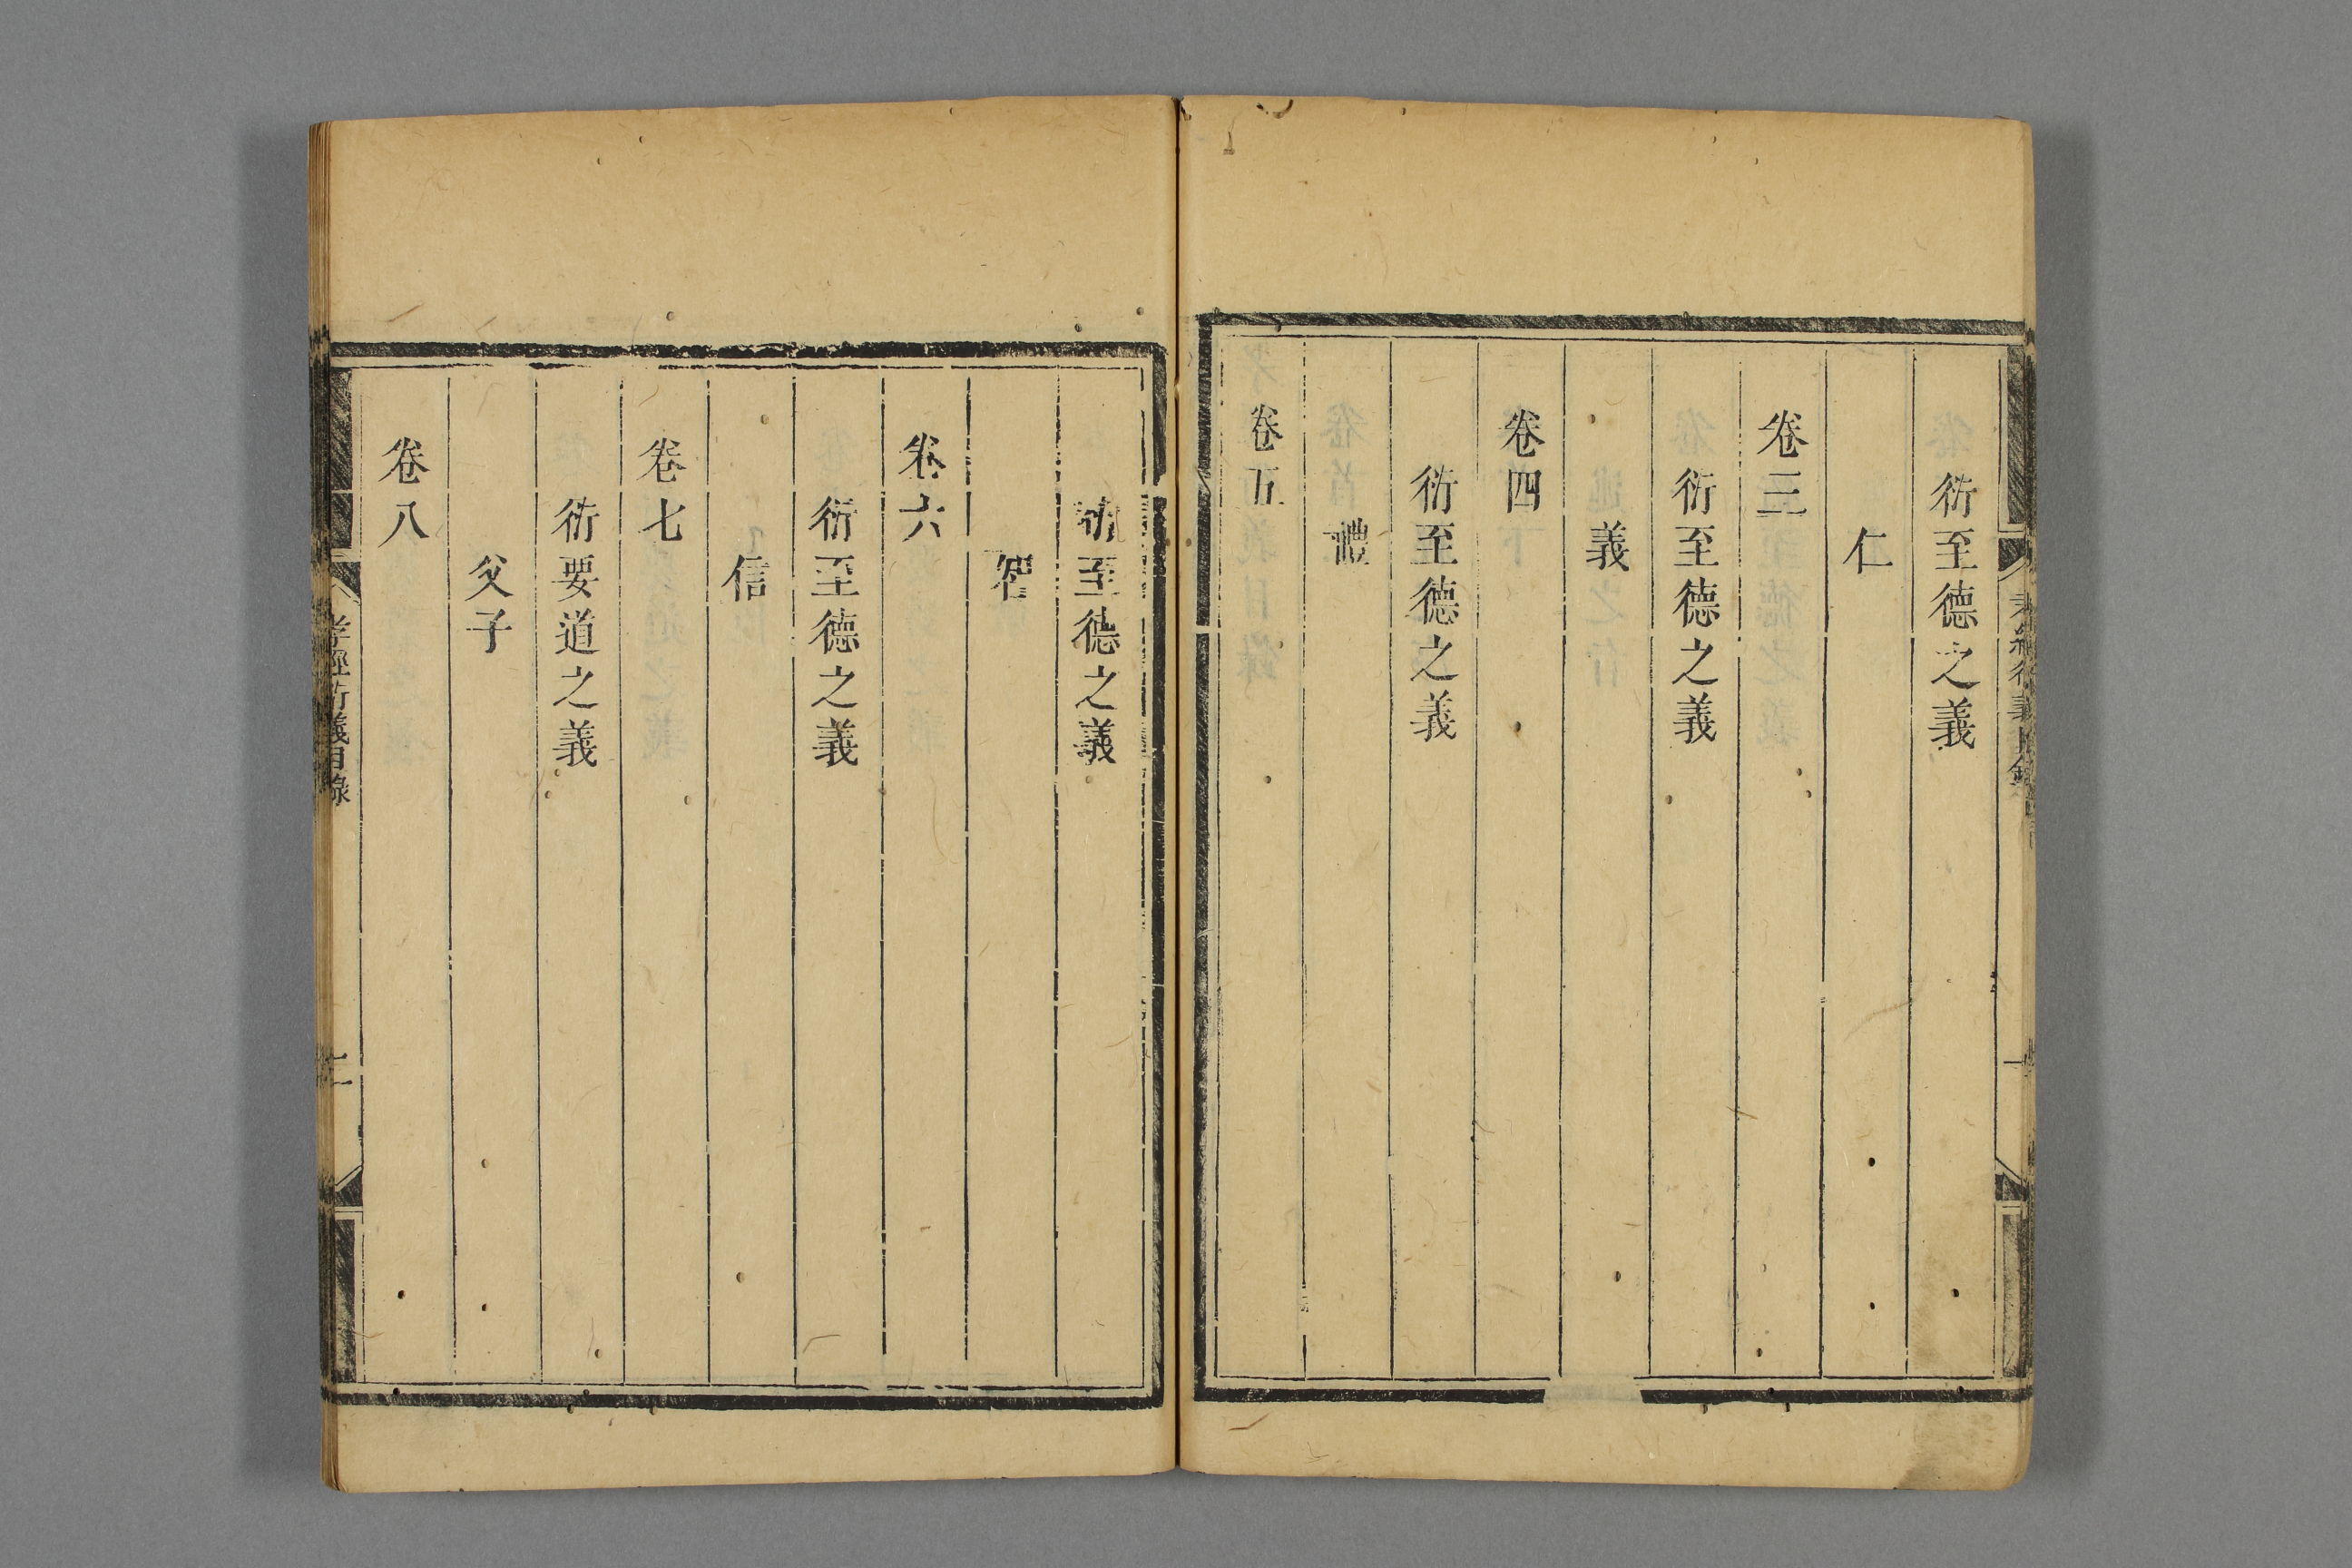 衍至德之義
仁
卷三
衍至德之義
義
卷四
衍至德之義
禮
卷五
衍至德之義
智
卷六
衍至德之義
信
卷七
衍要道之義
父子
卷八
孝經衍義目錄
二